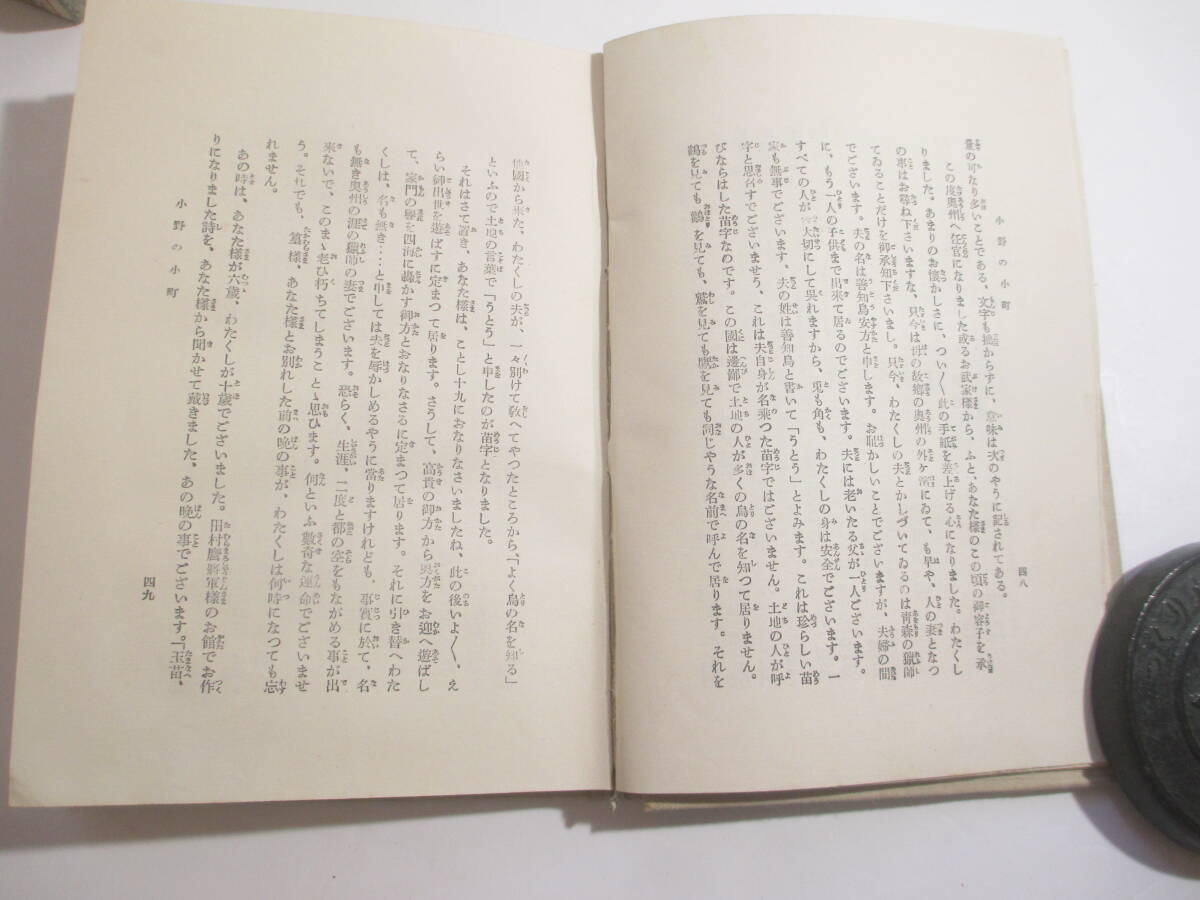 小野の小町
四八
量の可なり多いことである、文字も拙からずに、意味は次のやうに記されてある。
この度奥州へ任官になりました或るお武家樣から、ふと、あなた樣のこの頃の御容子を承
りました。あまりのお懷かしさに、つい〱此の手紙を差上げる心になりました。わたくし
の事はお尋ね下さいますな、只今は母の故鄕の奥州の外ヶ濱にゐて、も早や、人の妻となつ
てゐることだけを御承知下さいまし。只今、わたくしの夫とかしづいてゐるのは靑森の獵師
でございます。夫の名は善知鳥安方と申します。お恥かしいことでございますが、夫婦の間
に、もう一人の子供まで出來て居るのでございます。夫には老いたる父が一人ございます。
すべての人が大切にして吳れますから、兎も角も、わたくしの身は安全でございます。一
家も無事でございます、夫の姓は善知鳥と書いて「うとう」とよみます。これは珍らしい苗
字と思召すでございませう、これは夫自身が名乘つた苗字ではございません。土地の人が呼
びならはした苗字なのです。この國は邊鄙で土地の人が多くの鳥の名を知つて居りません。
鶴を見ても、鸛を見ても、鷲を見ても、鷹を見ても同じやうな名前で呼んで居ります。それを
他國から來た、わたくしの夫が、一々別けて敎へてやつたところから、「よく鳥の名を知る」
といふので土地の言葉で「うとう」と申したのが苗字となりました。
それはさて置き、あなた樣は、ことし十九におなりなさいましたね、此の後いよ〱、え
らい御出世を遊ばすに定まつて居ります。さうして、高貴の御方から奥方をお迎へ遊ばし
て、家門の譽を四海に轟かす御方とおなりなさるに定まつて居ります。それに引き替へわた
くしは、名も無き‥‥と申しては夫を辱かしめるやうに當りますけれども、事實に於て、名
も無き奥州の涯の獵師の妻でございます。恐らく、生涯、二度と都の空をもながめる事が出
來ないで、このまゝ老ひ朽ちてしまうことゝ思ひます。何といふ數奇な運命でございませ
う。それでも、篁樣、あなた樣とお別れした前の晩の事が、わたくしは何時になつても忘
れません。
あの時は、あなた樣が六歲、わたくしが十歲でございました。田村麿將軍樣のお館でお作
りになりました詩を、あなた樣から聞かせて戴きました、あの晩の事でございます。「玉苗、
小野の小町
四九